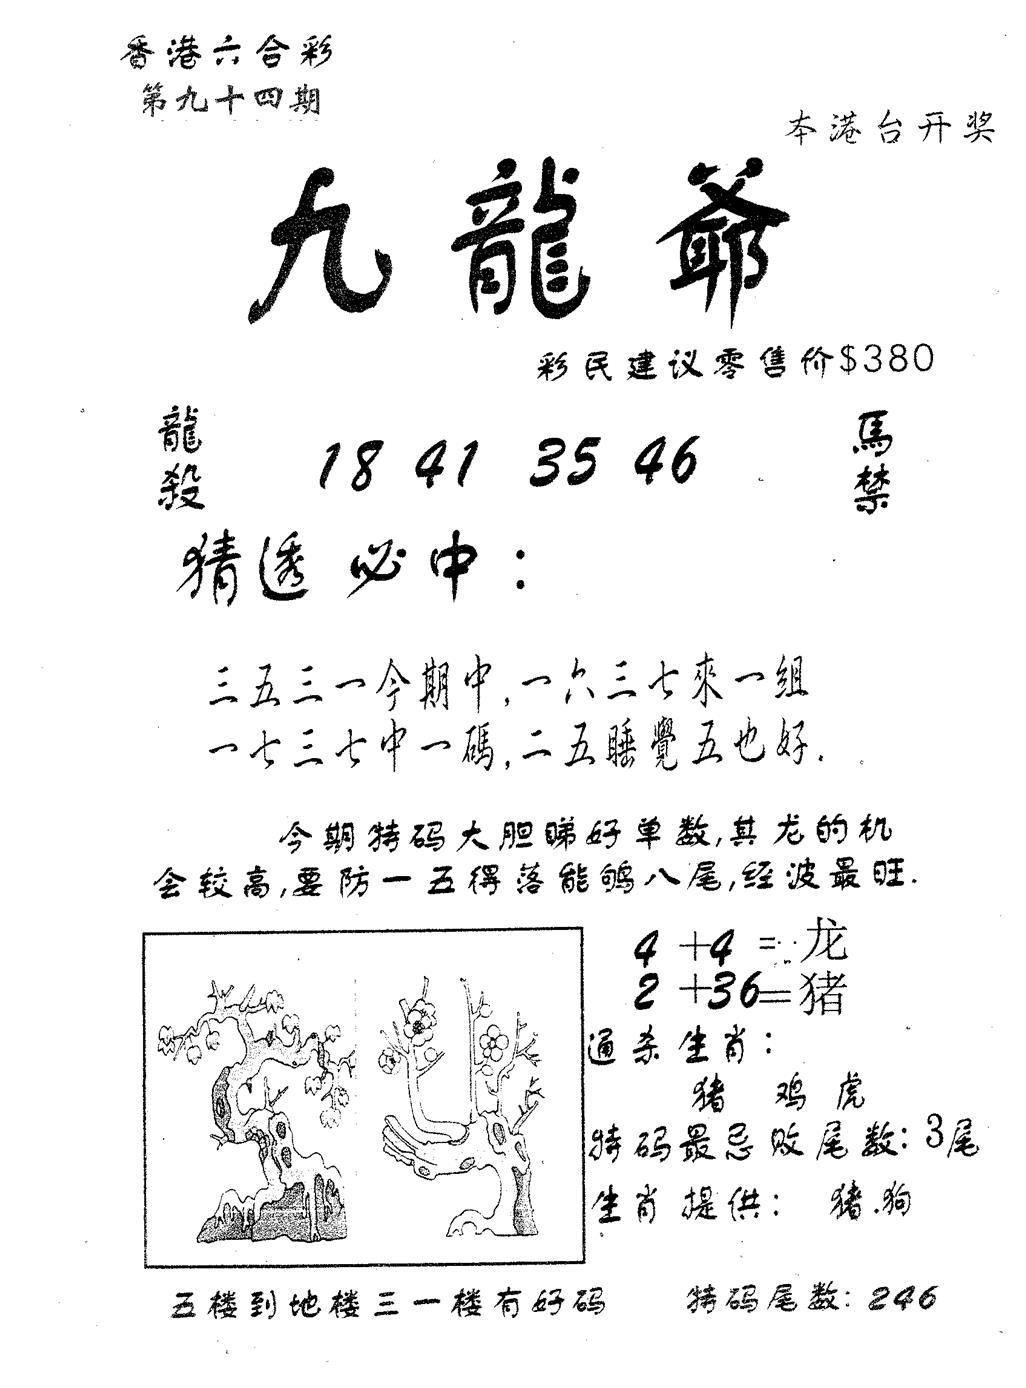 香港六合彩
第九十四期
本港台开奖
九龍爺
彩民建议零售价$380
龍殺
18 41 35 46
馬禁
猜透必中：
三五三一今期中,一六三七來一组
一七三七中一碼,二五睡覺五也好.
今期特码大胆睇好单数,其龙的机
会较高,要防一五得落能鸲八尾,经波最旺.
4+4=龙
2+36=猪
通杀生肖：
猪 鸡虎
特码最忌败尾数：3尾
生肖提供： 猪.狗
五楼到地楼三一楼有好码 特码尾数：246